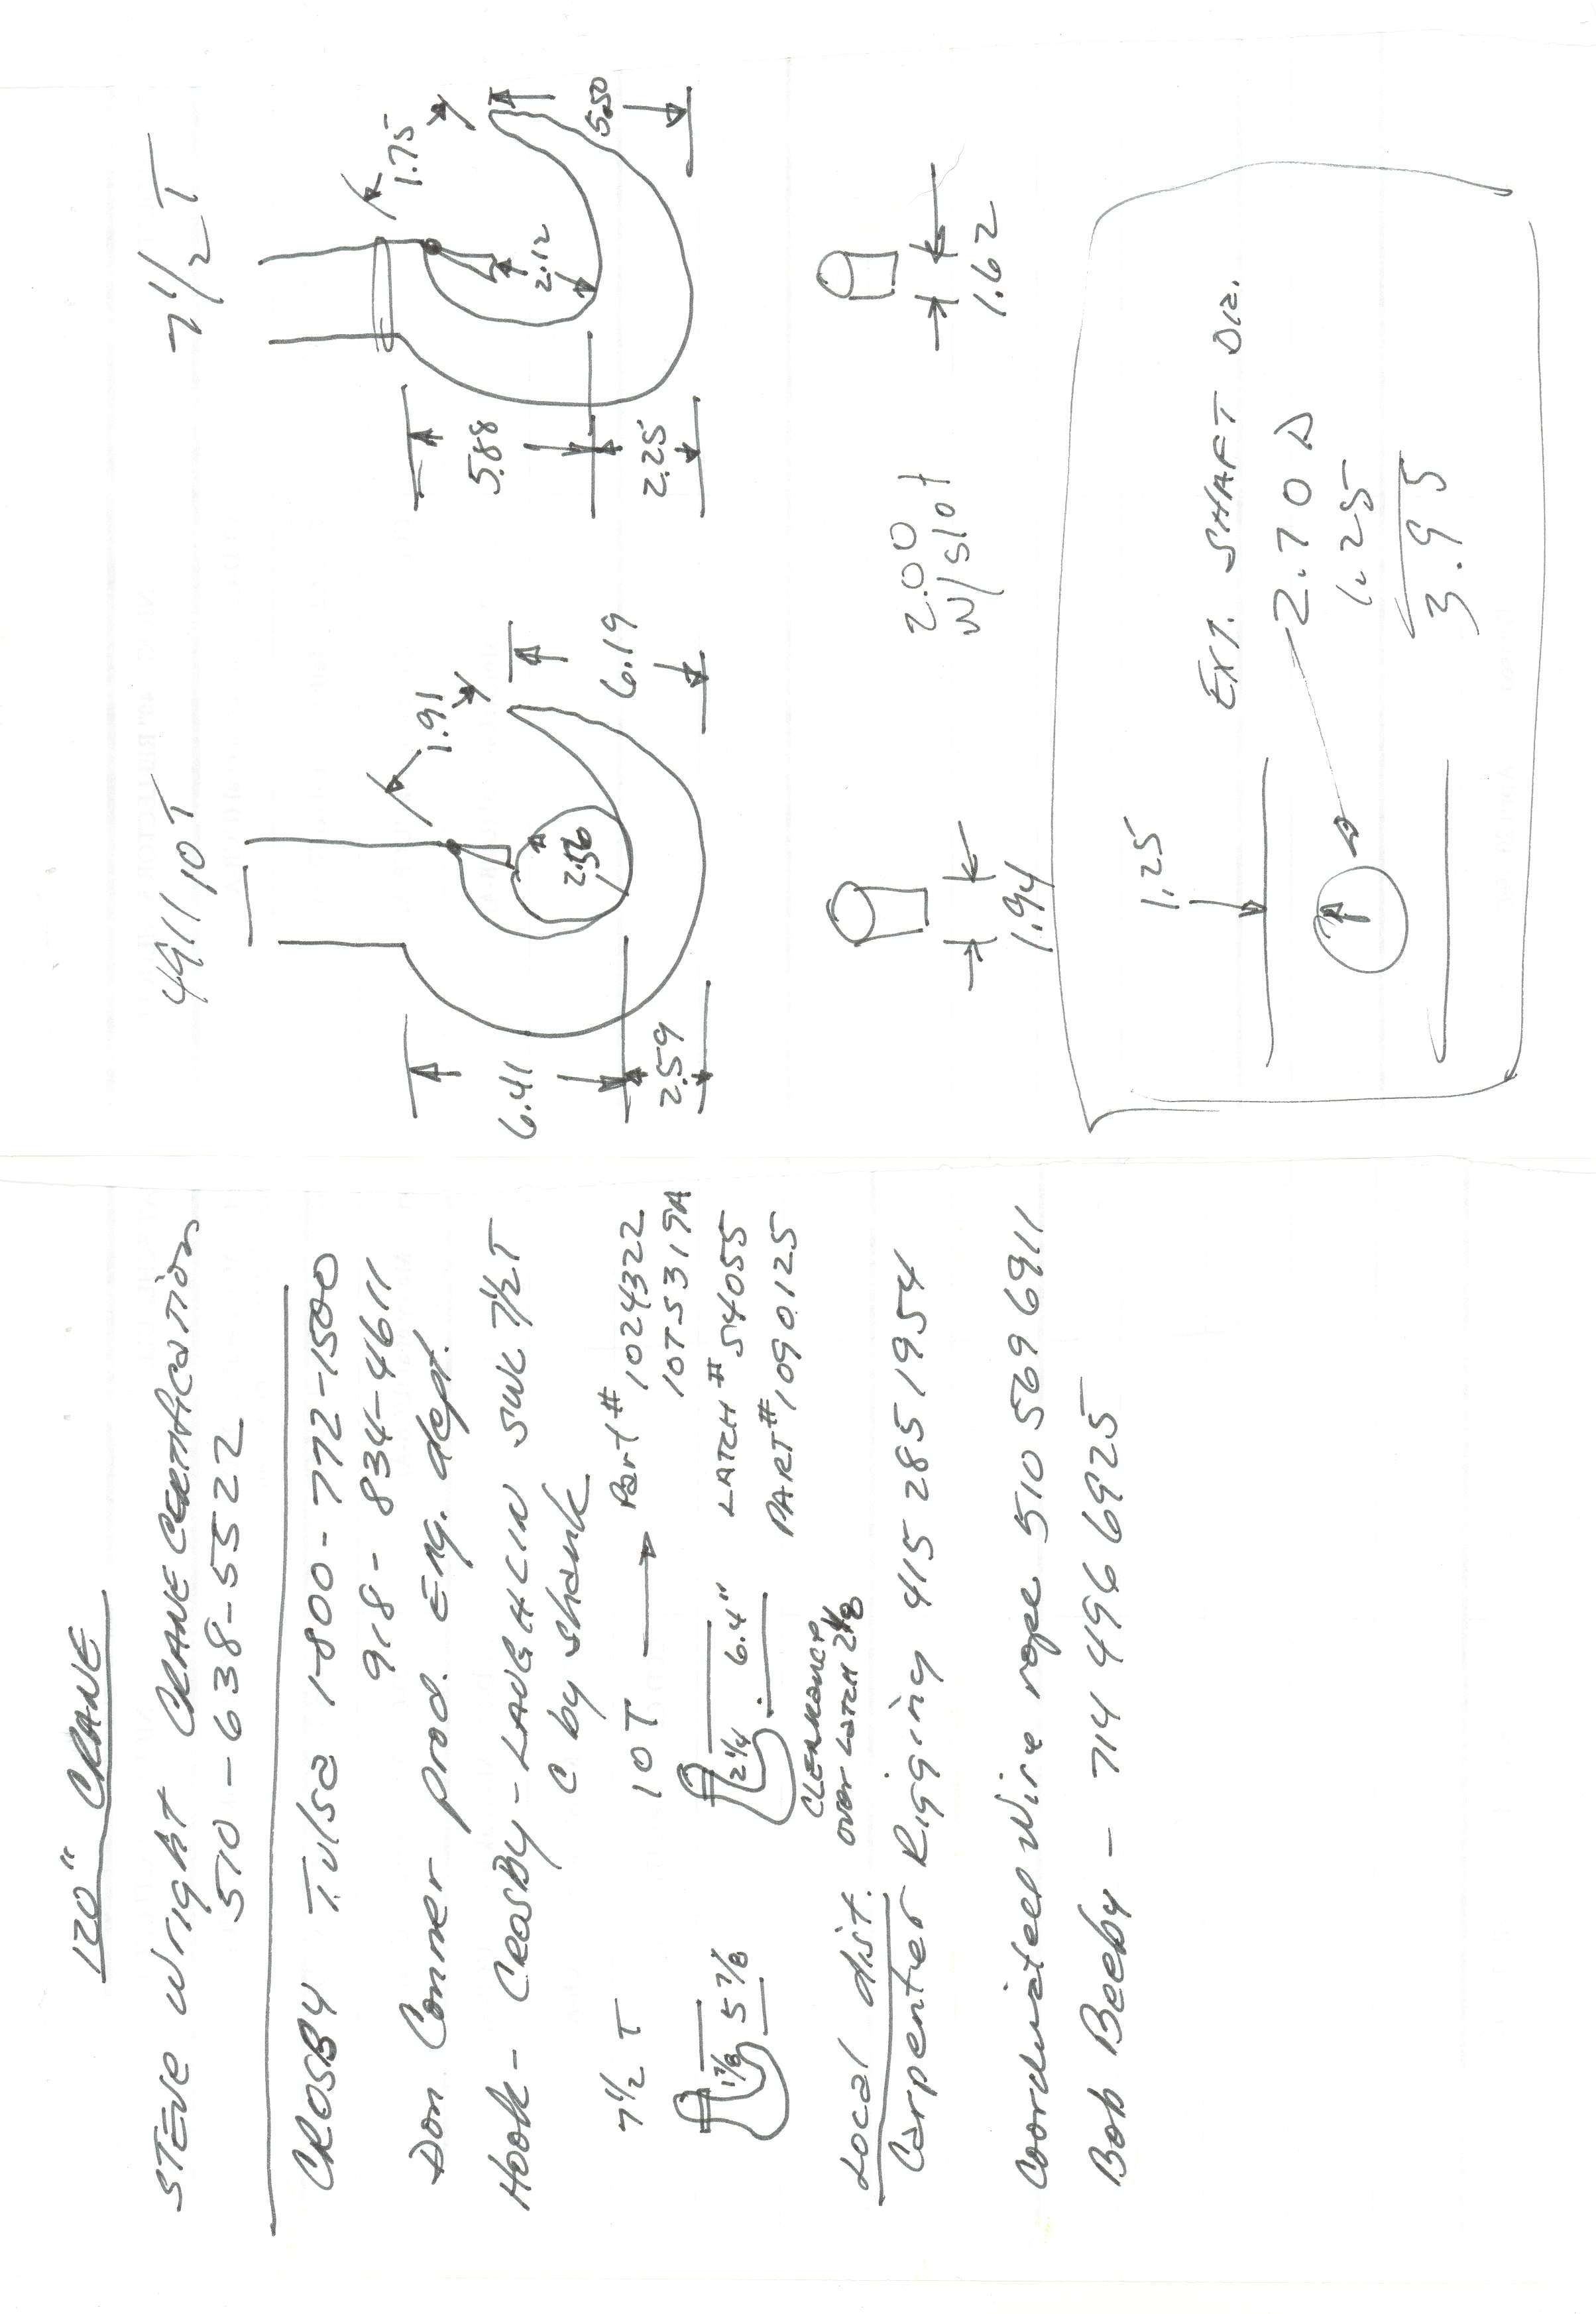 120" CRANE
STEVE Wright CRANE CERTIFICATION
510-638-5522
CROSBY Tulsa 1-800-772-1500
918-834-4611
Don Conner prod. Eng. dept.
Hook- CROSBY-LAUGHLIN SWL 7 1/2 T
C by shank
7 1/2 T
10T → Part # 1024322
10TS319A
1 7/8 5 7/8
2 1/4 6.4"
LATCH # S4055
PART # 1090125
CLEARANCE
over LATCH 2 1/8
Local dist.
Carpenter Rigging 415 285 1954
Coordinated Wire rope 510 569 6911
Bob Beeby - 714 496 6925
10T
7 1/2 T
1.91
6.19
2.56
6.41
2.59
1.75
5.50
2.12
5.88
2.25
1.94
2.00
W/slot
1.62
1.25
EXT. SHAFT DIA.
2.70
1.25
3.95